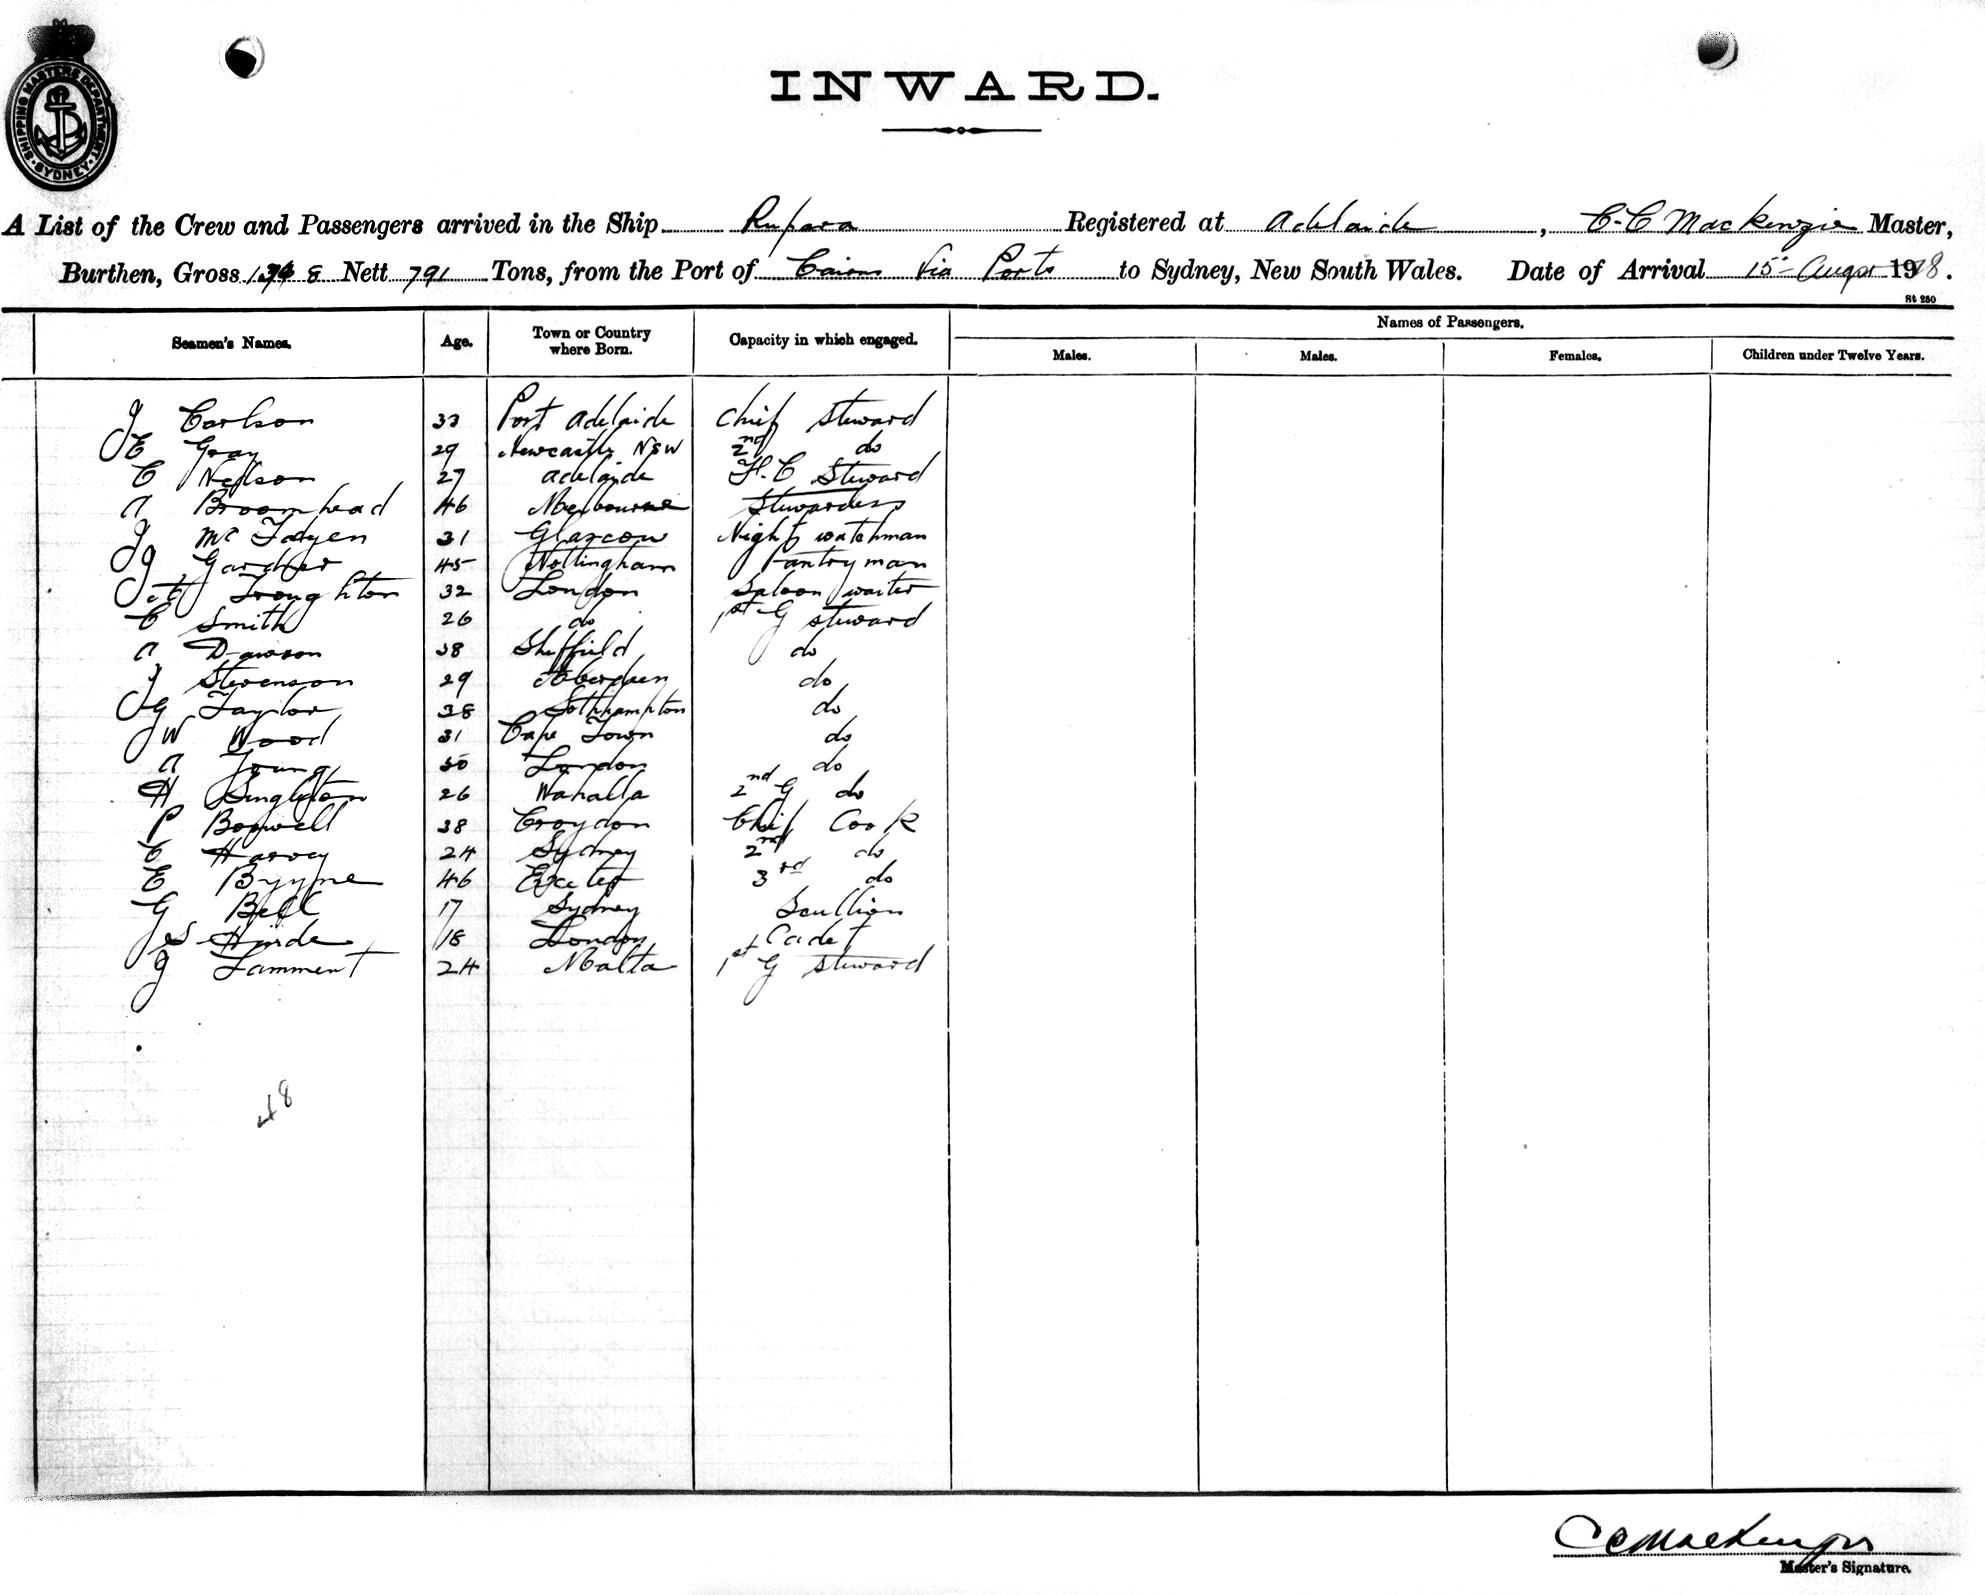 SHIPPING MASTERS DEPARTMENT
SYDNEY
INWARD.
A List of the Crew and Passengers arrived in the Ship Rupara Registered at Adelaide, C.C Mackenzie Master,
Burthen, Gross Nett 791 Tons, from the Port of Cairns Via Ports to Sydney, New South Wales. Date of Arrival 15 1918.
St 250
Seamen's Names. Age. Town or Country where Born. Capacity in which engaged. Names of Passengers.
Males. Males. Females. Children under Twelve Years.
J Carlson 33 Port Adelaide Chief Steward
J E Gray 29 Newcastle NSW 2nd do
C Neilson 27 Adelaide F.C Steward
A Broomhead 46 Melbourne Stewardess
J McFadyen 31 Glascow Night watchman
J G Gardner 45 Nottingham Pantryman
J H Troughton 32 London Saloon waiter
C Smith 26 do 1st G steward
A Dawson 38 Sheffield do
J Stevenson 29 Aberdeen do
J G Taylor 38 Sothhampton do
J W Wood 31 Cape Town do
A Young 50 London do
H Singleton 26 Walhalla 2nd G do
P Boswell 38 Croydon Chief Cook
C Harvey 24 Sydney 2nd do
E Byrne 46 Exeter 3rd do
G Bell 17 Sydney Scullion
J S Hinde 18 London Cadet
J Lamment 24 Malta 1st G Steward
48
CCMackenzie
Master's Signature.